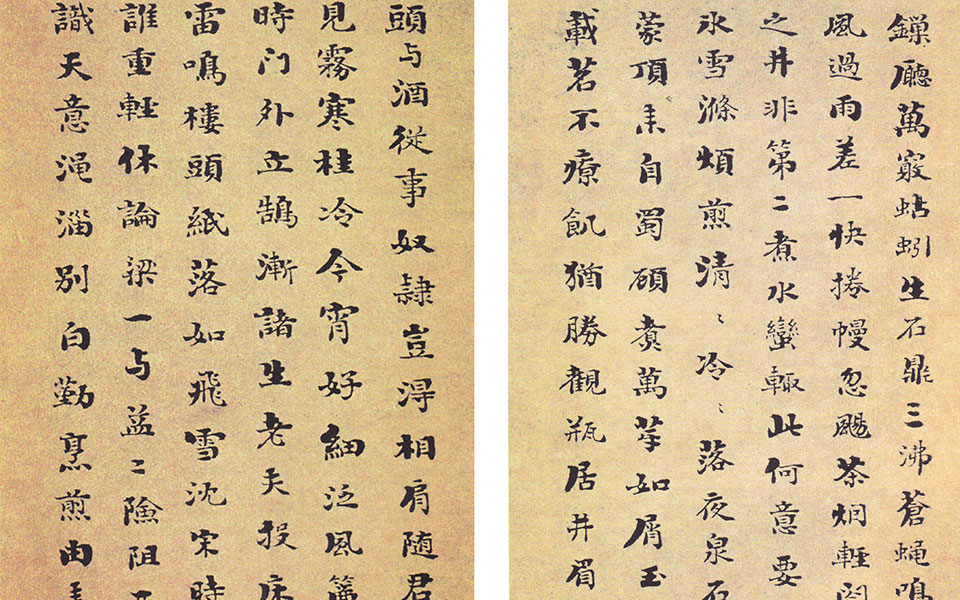 鏁廳萬竅蛄蚓生石鼎三沸蒼蝇鳴
風過雨差一快捲幔忽颺茶烟輕閣
之井非第二煮水蠻輙此何意要
氷雪滌煩煎清〻冷〻落夜泉石
蒙頂来自蜀碩賚萬芽如屑玉
載茗不療飢猶勝觀瓶居井眉
頭与酒従事奴隷豈淂相肩随君
見霧寒桂冷今宵好細泛風簾
時门外立鵠漸諸生老夫投床
雷鳴樓頭紙落如飛雪沈宋時
誰重輕休論梁一与益二險阻
識天意渑淄别白勤烹煎由